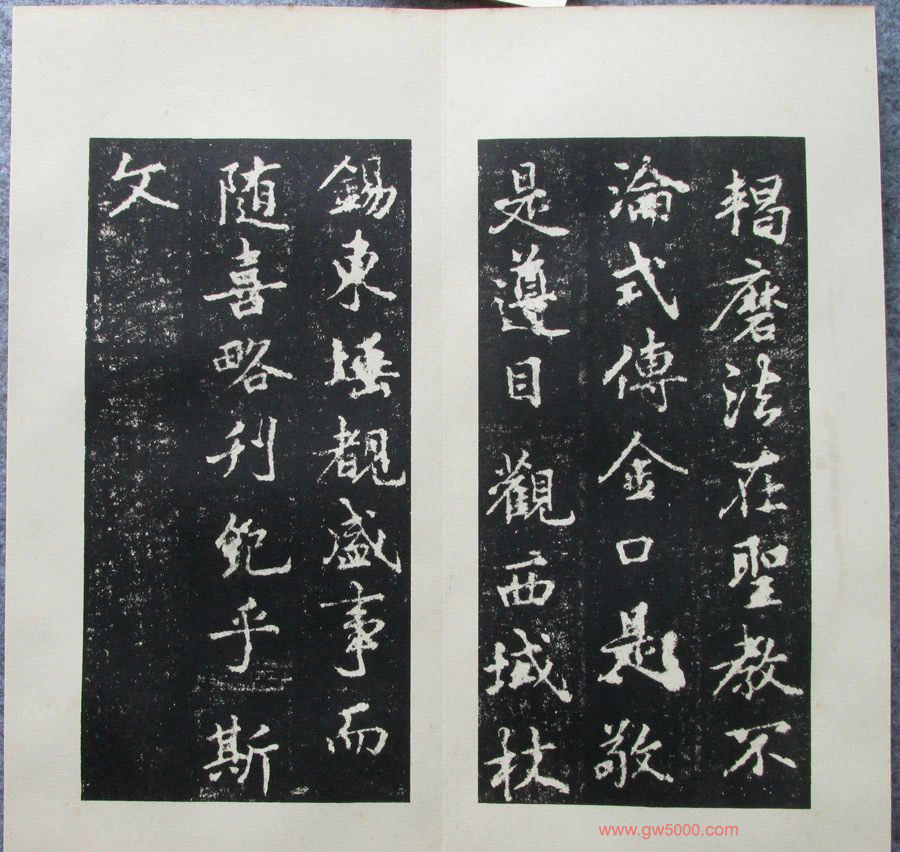 羯磨法在聖教不
淪式傳金口是敬
是遵目觀西域杖
錫東埵覩盛事而
随喜略刋銘乎斯
文
www.gw5000.com